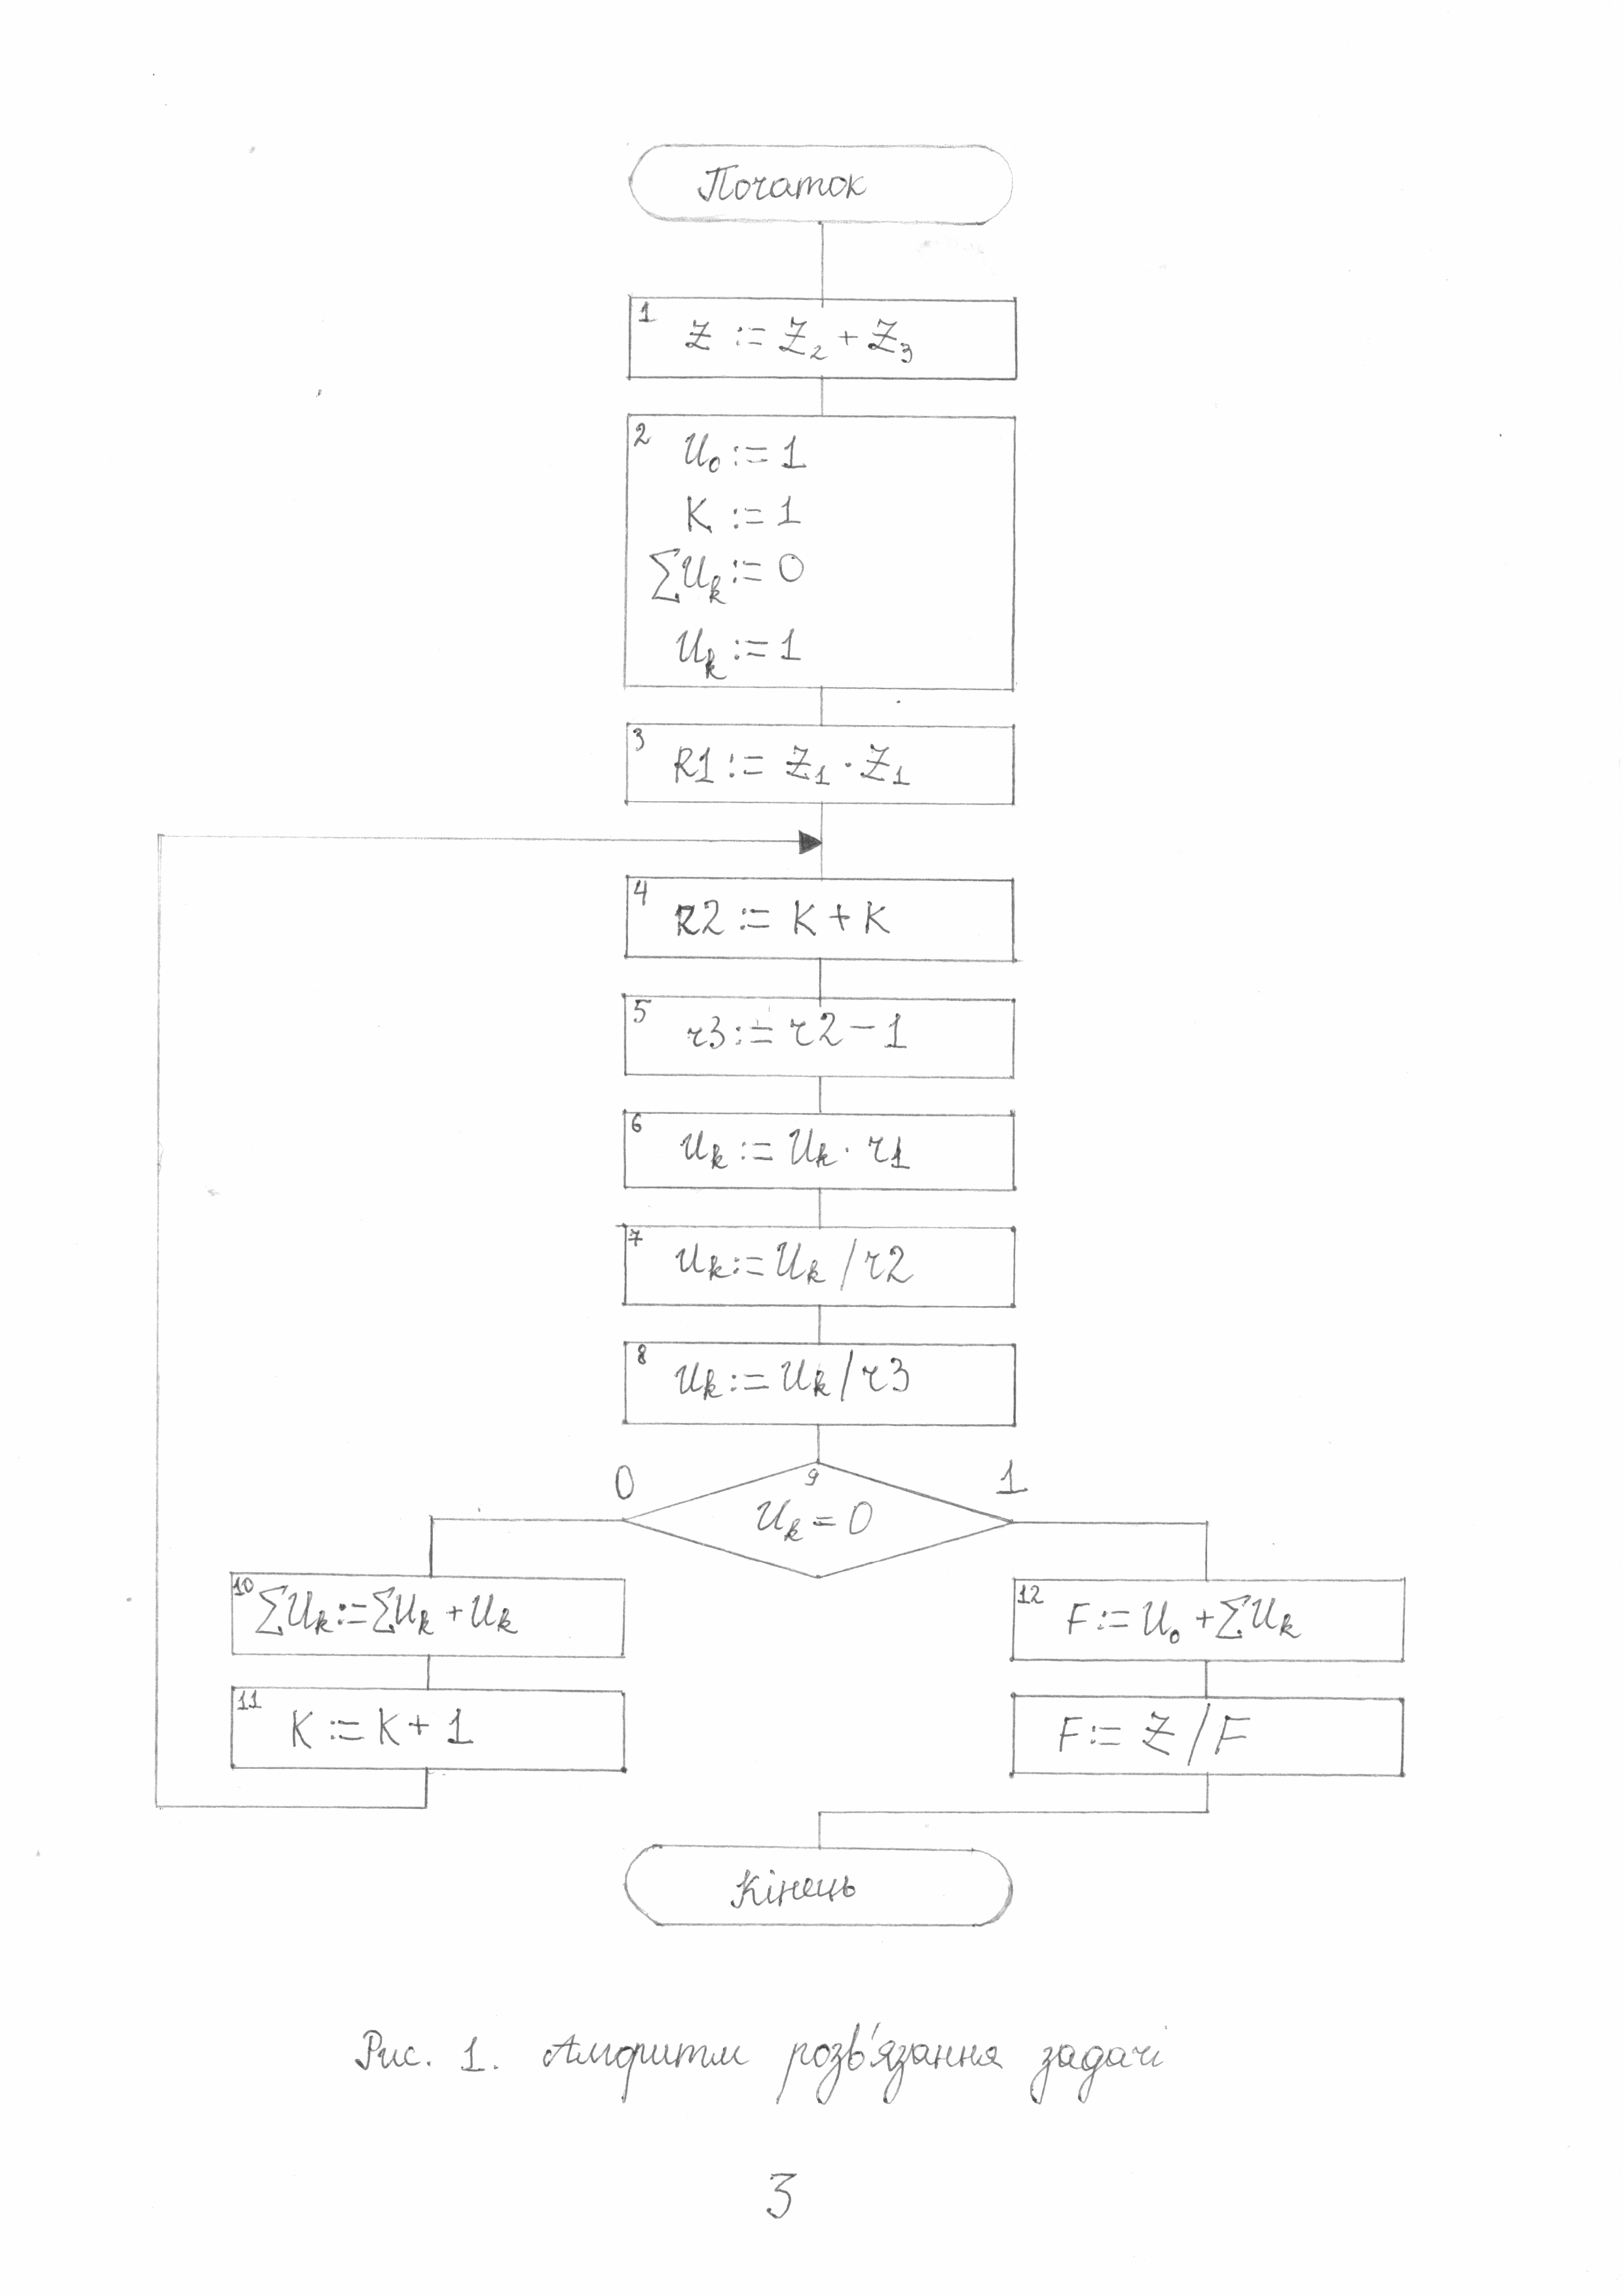 Початок
1 Z := Z₂ + Z₃
2 U₀ := 1
K := 1
∑Uₖ := 0
Uₖ := 1
3 R1 := Z₁ · Z₁
4 R2 := K + K
5 r3 := r2 − 1
6 Uₖ := Uₖ · r1
7 Uₖ := Uₖ / r2
8 Uₖ := Uₖ / r3
0 9 1
Uₖ = 0
10 ∑Uₖ := ∑Uₖ + Uₖ
12 F := U₀ + ∑Uₖ
11 K := K + 1
F := Z / F
Кінець
Рис. 1. Алгоритм розв'язання задачі
3